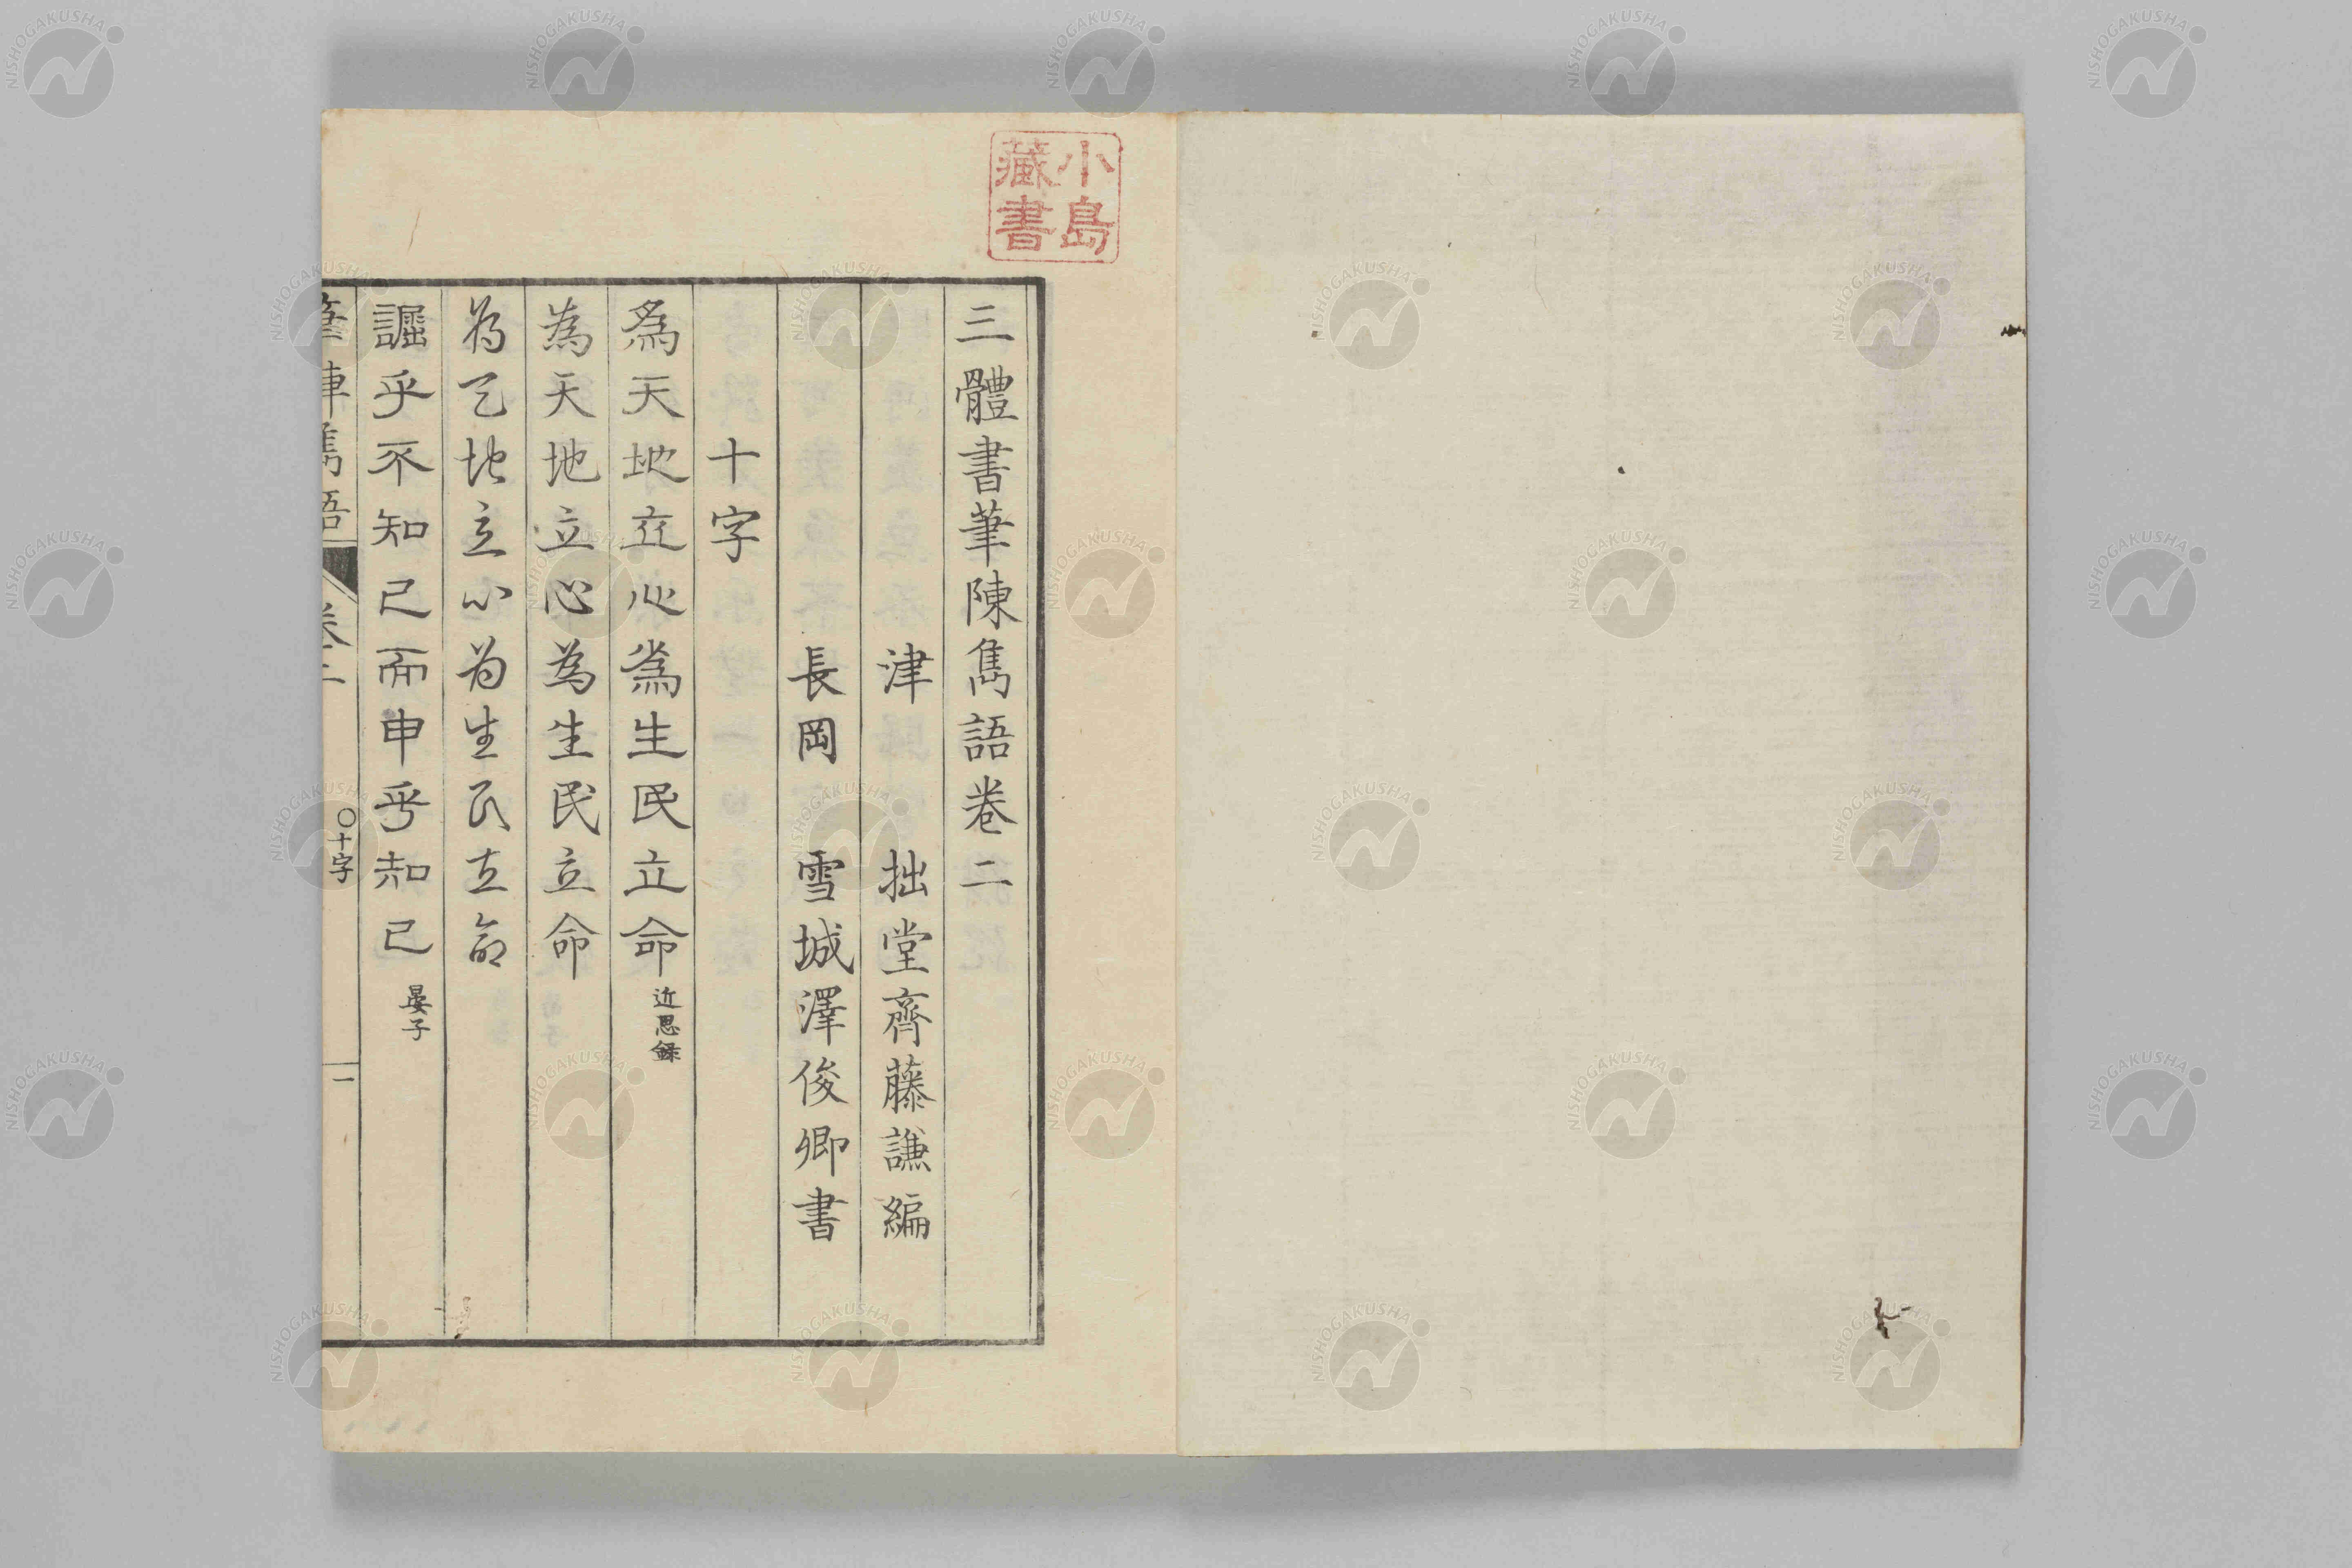 小島
藏書
三體書筆陳雋語卷二
津 拙堂齊藤謙編
長岡 雪城澤俊卿書
十字
為天地立心為生民立命 近思錄
為天地立心為生民立命
為天地立心為生民立命
詘乎不知己而申乎知己 晏子
筆陣雋語 卷二 〇十字 一
NISHOGAKUSHA